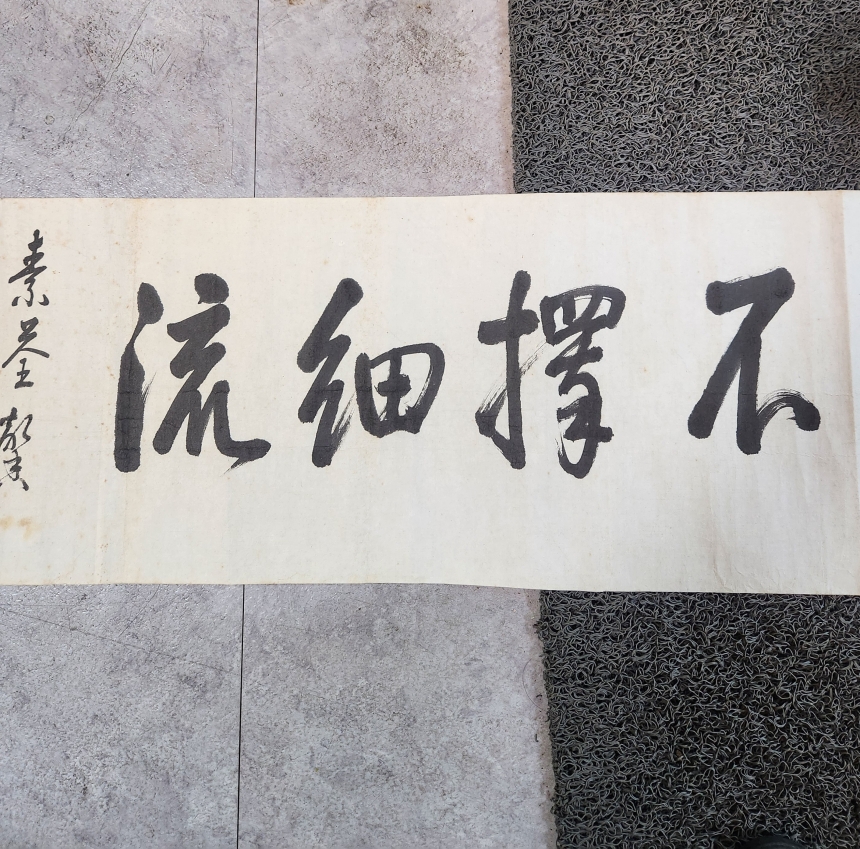 不擇細流
素荃